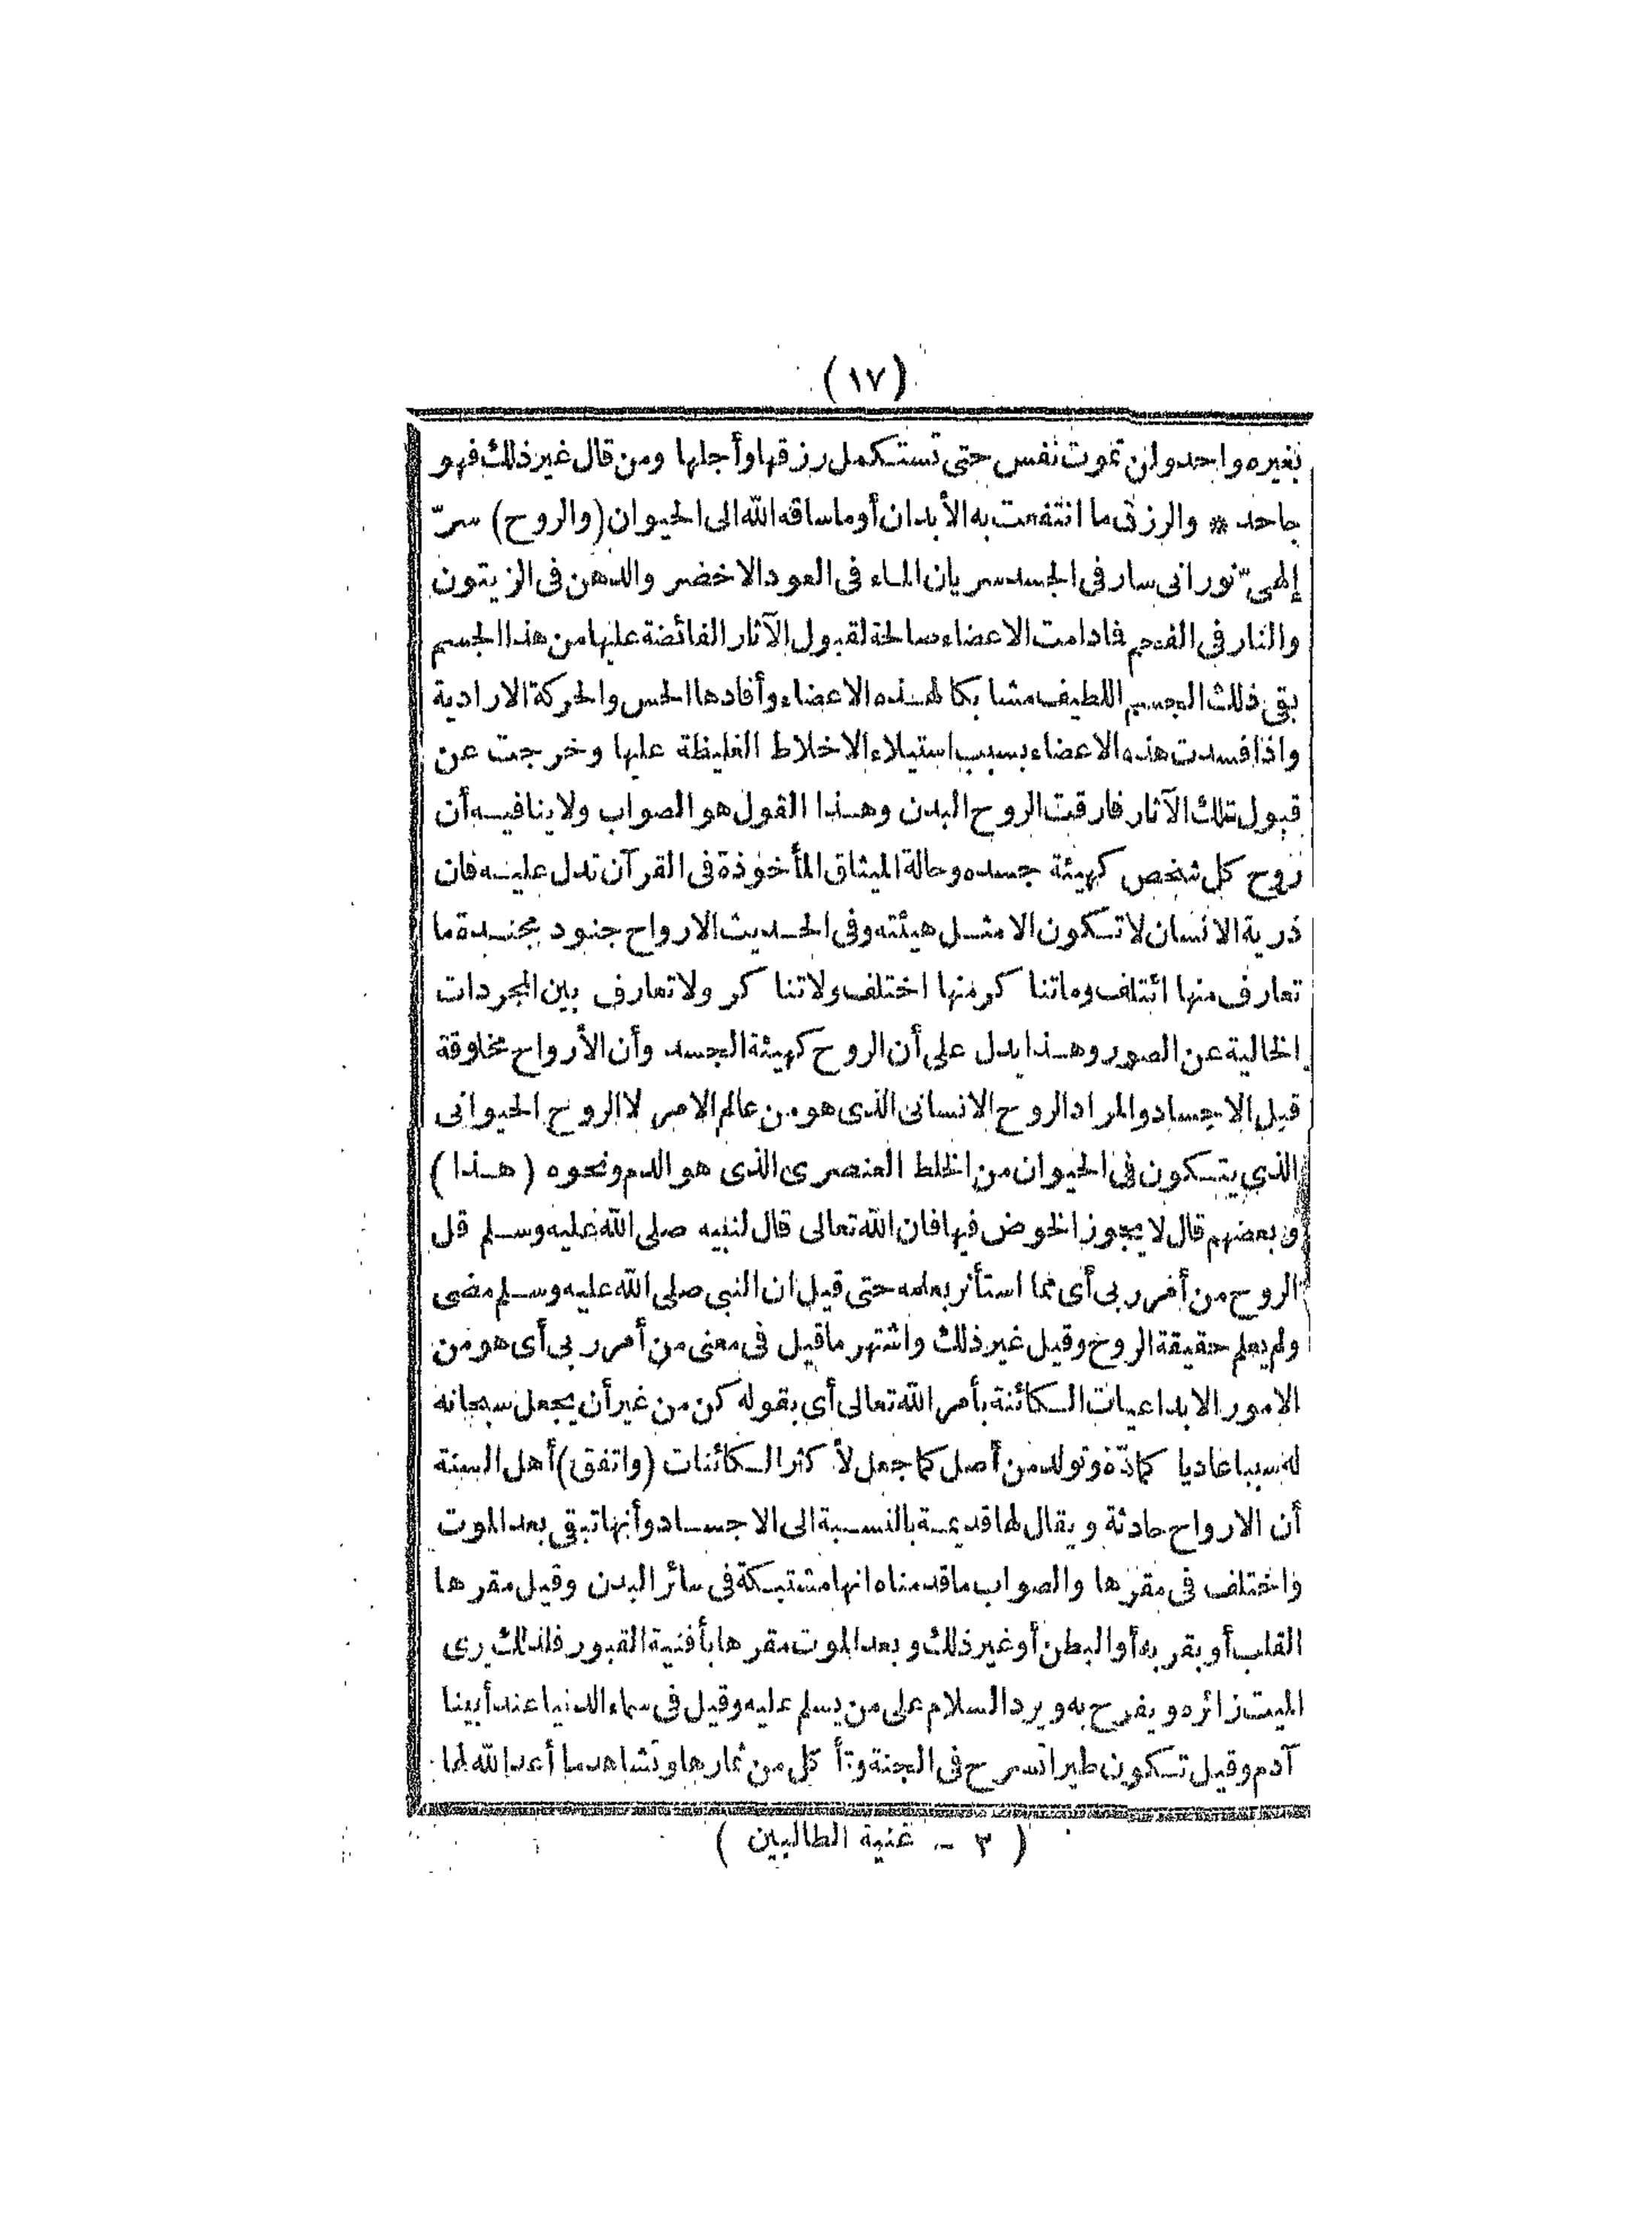 (١٧)
بغيره واحد ولن تموت نفس حتى تستكمل رزقها وأجلها ومن قال غير ذلك فهو
جاحد * والرزق ما انتفعت به الأبدان أو ما ساقه الله الى الحيوان (والروح) سرّ
إلهىّ نورانى سار فى الجسد سريان الماء فى العود الاخضر والدهن فى الزيتون
والنار فى الفحم فادامت الاعضاء صالحة لقبول الآثار الفائضة عليها من هذا الجسم
بقى ذلك الجسم اللطيف مشابكا لهذه الاعضاء وأفادها الحس والحركة الارادية
واذا فسدت هذه الاعضاء بسبب استيلاء الاخلاط الغليظة عليها وخرجت عن
قبول تلك الآثار فارقت الروح البدن وهذا القول هو الصواب ولا ينافيه أن
روح كل شخص كهيئة جسده وحالة الميثاق المأخوذة فى القرآن تدل عليه فان
ذرية الانسان لا تكون الا مثل هيئته وفى الحديث الارواح جنود مجندة ما
تعارف منها ائتلف وما تناكر منها اختلف ولا تناكر ولا تعارف بين المجردات
الخالية عن الصور وهذا يدل على أن الروح كهيئة الجسد وأن الأرواح مخلوقة
قبل الاجساد والمراد الروح الانسانى الذى هو من عالم الامر لا الروح الحيوانى
الذى يتكون فى الحيوان من الخلط العنصرى الذى هو الدم ونحوه (هذا)
وبعضهم قال لا يجوز الخوض فيها فان الله تعالى قال لنبيه صلى الله عليه وسلم قل
الروح من أمر ربى أى مما استأثر بعلمه حتى قيل ان النبى صلى الله عليه وسلم مضى
ولم يعلم حقيقة الروح وقيل غير ذلك واشتهر ما قيل فى معنى من أمر ربى أى هو من
الامور الابداعيات الكائنة بأمر الله تعالى أى بقوله كن من غير أن يجعل سبحانه
له سببا عاديا كمادّة وتولد من أصل كما جعل لأكثر الكائنات (واتفق) أهل السنة
أن الارواح حادثة ويقال لها قديمة بالنسبة الى الاجساد وأنها تبقى بعد الموت
واختلف فى مقرها والصواب ما قدمناه انها مشتبكة فى سائر البدن وقيل مقرها
القلب أو بقربه أو البطن أو غير ذلك وبعد الموت مقرها بأفنية القبور فلذلك يرى
الميت زائره ويفرح به ويرد السلام على من يسلم عليه وقيل فى سماء الدنيا عند أبينا
آدم وقيل تكون طيرا تسرح فى الجنة وتأكل من ثمارها وتشاهد ما أعد الله لها
(٣ - غنية الطالبين)